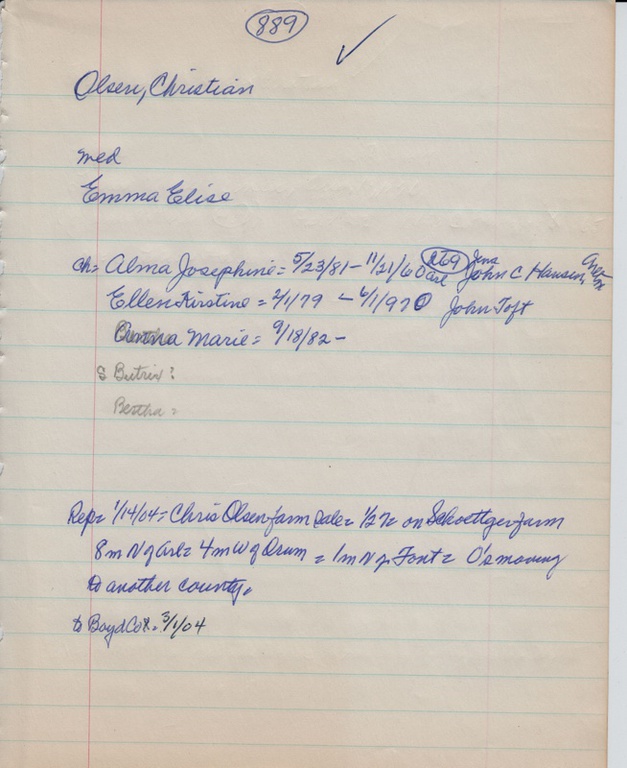 889
Olsen, Christian
med
Emma Elise
ch= Alma Josephine = 5/23/81 - 11/21/60 269 Arl Jens John C Hansen,
Ellen Kirstine = 2/1/79 - 6/1/970 John Toft
Anna Marie = 9/18/82 -
S Butrix?
Bertha =
Rep= 1/14/04 = Chris Olsen farm sale = 1/27= on Schoettger farm
8m N of Arl= 4m W of Orum = 1m N of Font = O's moving
to another county.
to Boyd Co = 3/1/04